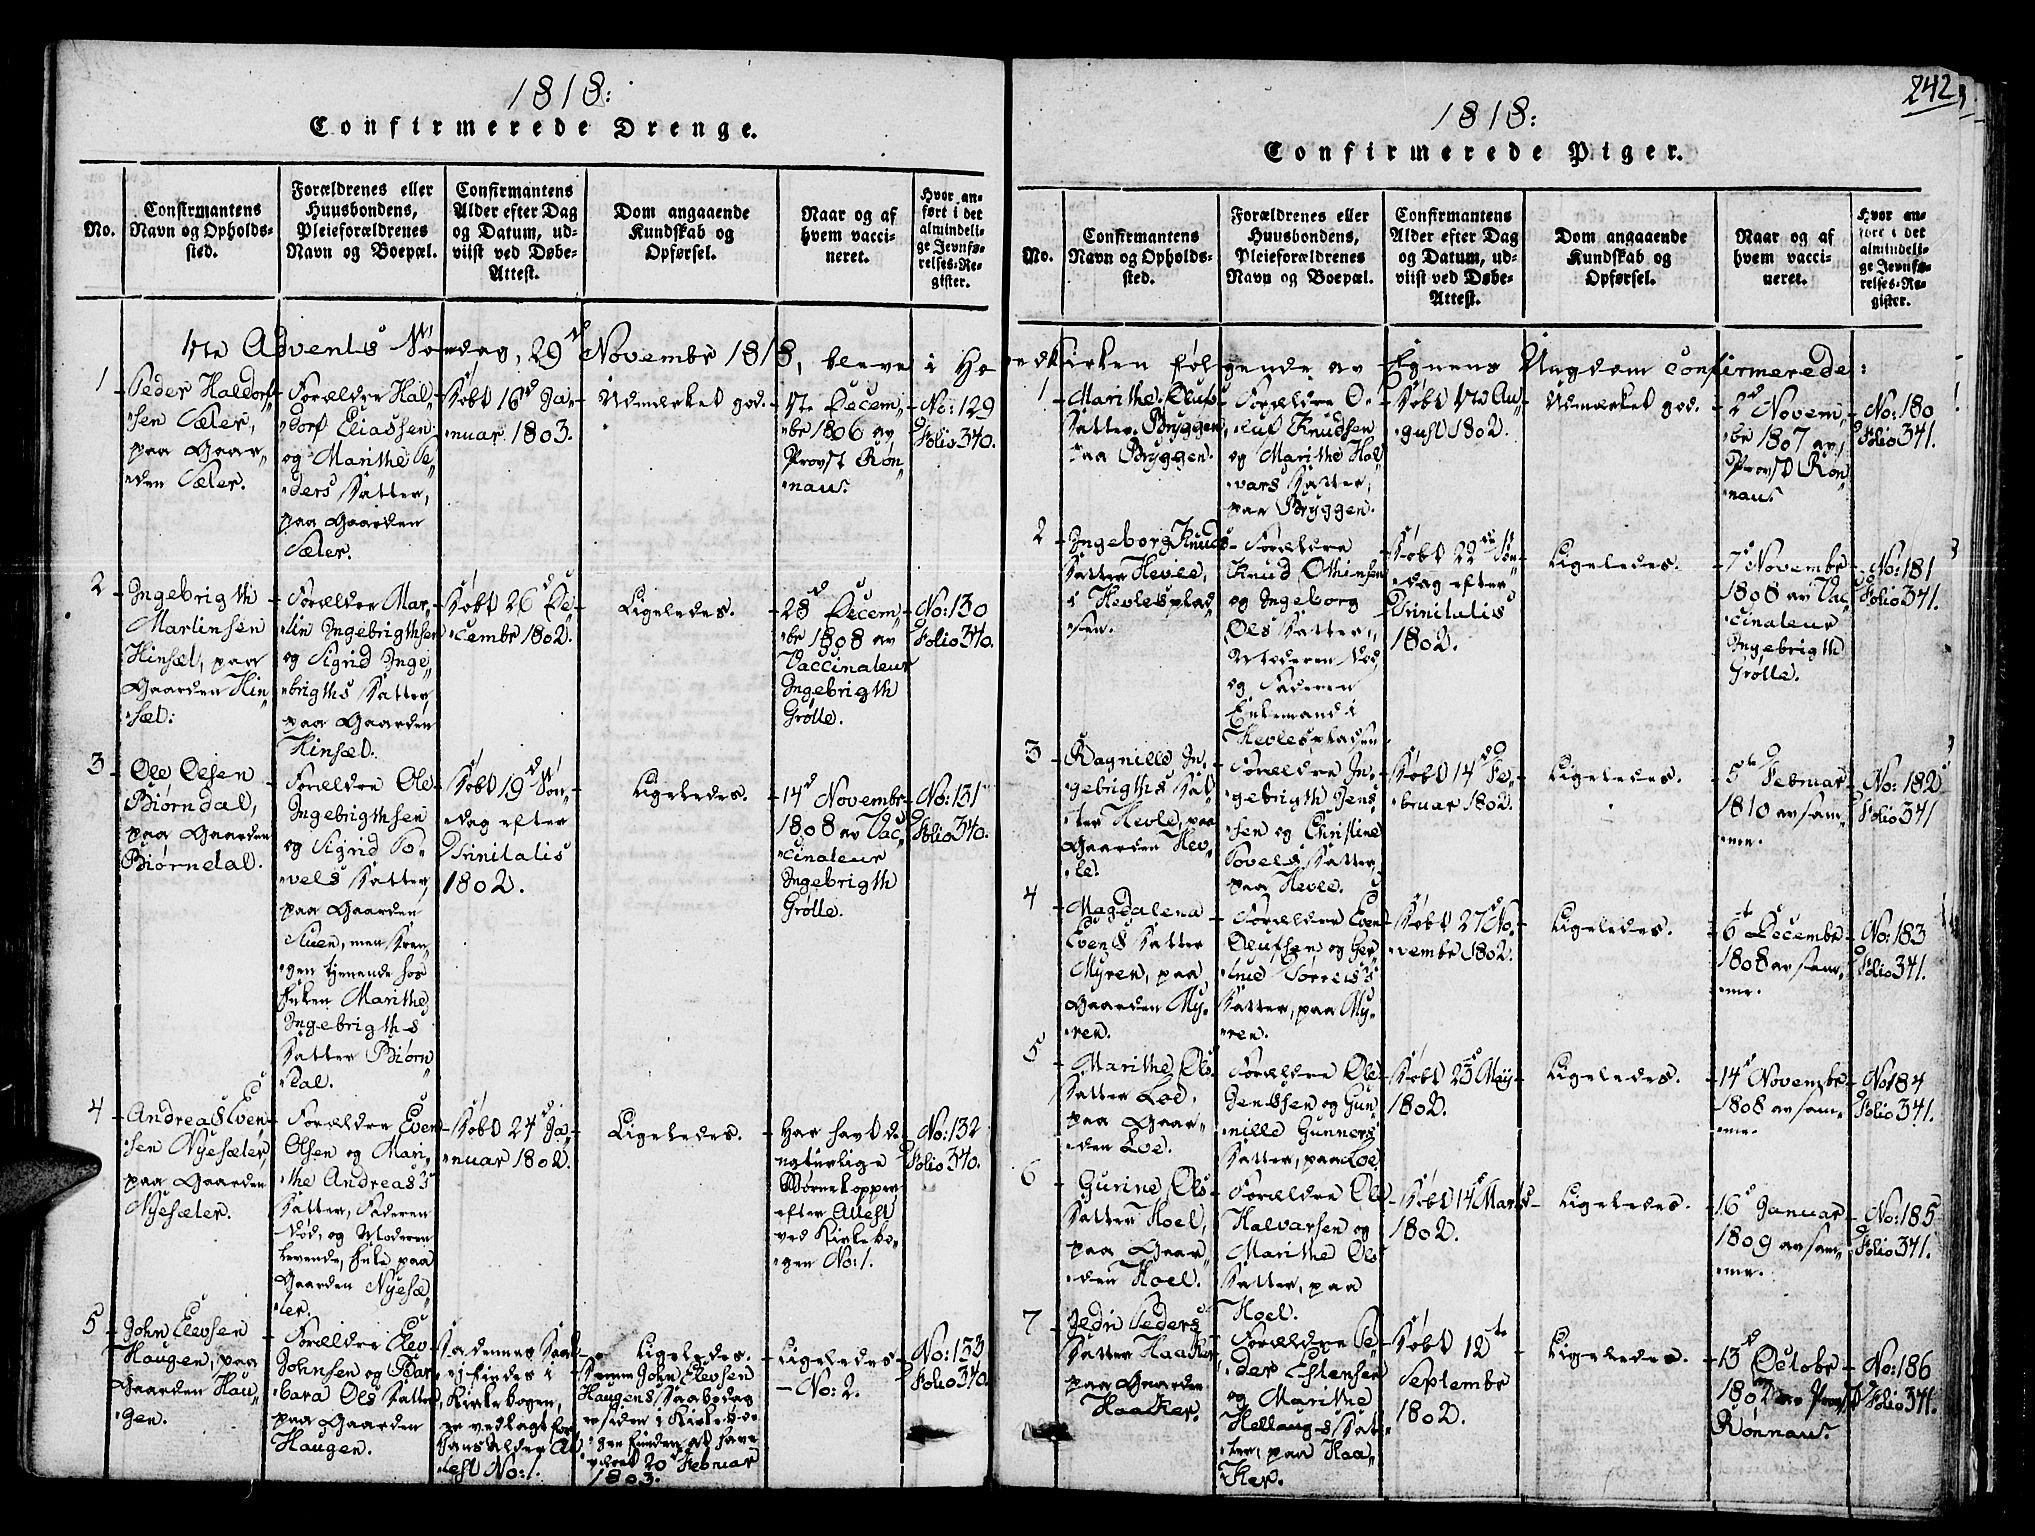 1818:
Confirmerede Drenge.
No.
Confirmantens
Navn og Opholds-
sted.
Forældrenes eller
Huusbondens,
Pleieforældrenes
Navn og Boepæl.
Confirmantens
Alder efter Dag
og Datum, ud-
viist ved Døbe-
Attest.
Dom angaaende
Kundskab og
Opførsel.
Naar og af
hvem vacci-
neret.
Hvor an-
ført i det
almindeli-
ge Jevnfø-
relses-Re-
gister.
1ste Advents Søndag, 29d Novembr 1818, bleve i Hoveđkirken følgende av Egnens Ungdom confirmerede:
1
Peder Haldorf-
sen Sæter,
paa Gaar-
den Sæter.
Forældre Hal-
dorf Eliassen
og Marithe Pe-
ders Datter,
paa Gaarden
Sæter.
Døbt 16d Ja-
nuar 1803.
Udmærket god.
1ste Decem-
br 1806 av
Provst Røn-
nau.
No: 129
Folio 340.
2
Ingebrigth
Martinsen
Hinsæt, paa
Gaarden Hin-
sæt.
Forældre Mar-
tin Ingebrigthsen
og Sigrid Inge-
brigths Datter,
paa Gaarden
Hinsæt.
Døbt 26d De-
cembr 1802.
Ligeledes.
28d Decem-
br 1808 av
Vaccinateur
Ingebrigth
Grølle.
No: 130
Folio 340.
3
Ole Olsen
Biørndal,
paa Gaarden
Biørndal.
Forældre Ole
Ingebrigthsen
og Sigrid Po-
vels Datter,
paa Gaarden
Stuen, men Dren-
gen tjenende hos
Enken Marithe
Ingebrigths
Datter Biørn-
dal.
Døbt 19d Søn-
dag efter
Trinitatis
1802.
Ligeledes.
14d Novembr
1808 av Vac-
cinateur
Ingebrigth
Grølle.
No: 131
Folio 340.
4
Andreas Even-
sen Nyesæter,
paa Gaarden
Nyesæter.
Forældre Even
Olsen og Mari-
the Andreas's
Datter, Faderen
død, og Moderen
levende, Enke paa
Gaarden Nyesæ-
ter.
Døbt 24d Ja-
nuar 1802.
Ligeledes.
Har havt de
naturlige
Børnekopper
efter Attest
ved Kirkebo-
gen No: 1.
No: 132
Folio 340.
5
John Elevsen
Haugen, paa
Gaarden Hau-
gen.
Forældre Elev
Johnsen og Bar-
bara Ols Datter
paa Gaarden
Haugen.
ej findes i
Kirkebogen,
er vedlagt for
hans Alder At-
test No: 1.
Ligeledes.
Samme John Elevsen
Haugens Daabsdag
er siden i Kirkebo-
gen funden at have
været 20d Februar
1803.
Ligeledes
– No: 2.
No: 133
Folio 340.
242
1818:
Confirmerede Piger.
No.
Confirmantens
Navn og Opholds-
sted.
Forældrenes eller
Huusbondens,
Pleieforældrenes
Navn og Boepæl.
Confirmantens
Alder efter Dag
og Datum, ud-
viist ved Døbe-
Attest.
Dom angaaende
Kundskab og
Opførsel.
Naar og af
hvem vacci-
neret.
Hvor an-
ført i det
almindeli-
ge Jevnfø-
relses-Re-
gister.
1
Marithe Olufs
Datter Bryggen,
paa Bryggen.
Forældre O-
luf Knudsen
og Marithe Hal-
vars Datter,
paa Bryggen.
Døbt 1ste Au-
gust 1802.
Udmærket god.
2d Novem-
br 1807 av
Provst Røn-
nau.
No: 180
Folio 341.
2
Ingeborg Knuds
Datter Hevle,
i Hevlesplad-
sen.
Forældre
Knud Othinsen
og Ingeborg
Ols Datter,
Moderen død,
og Faderen
Enkemand i
Hevlespladsen.
Døbt 22de Søn-
dag efter
Trinitatis
1802.
Ligeledes.
7d Novembr
1808 av Vac-
cinateur
Ingebrigth
Grølle.
No: 181
Folio 341.
3
Ragnille In-
gebrigths Dat-
ter Hevle, paa
Gaarden Hev-
le.
Forældre In-
gebrigth Jens-
sen og Christine
Povels Datter,
paa Hevle.
Døbt 14de Fe-
bruar 1802.
Ligeledes.
5te Februar
1810 av sam-
me.
No: 182
Folio 341
4
Magdalena
Evens Datter
Myren, paa
Gaarden My-
ren.
Forældre Even
Olufsen og Ger-
trud Torress's
Datter, paa My-
ren.
Døbt 27d No-
vembr 1802.
Ligeledes.
6te Decembr
1808 av sam-
me.
No: 183
Folio 341.
5
Marithe Ols
Datter Loe,
paa Gaar-
den Loe.
Forældre Ole
Jenssen og Gun-
nille Gunners
Datter, paa Loe.
Døbt 23d May
1802.
Ligeledes.
14d Novembr
1808 av sam-
me.
No 184
Folio 341.
6
Gurine Ols
Datter Hoel,
paa Gaar-
den Hoel.
Forældre Ole
Halvarsen og
Marithe Ols
Datter, paa
Hoel.
Døbt 14d Marts
1802.
Ligeledes.
16d Januar
1809 av sam-
me.
No: 185
Folio 341.
7
Peders
Datter Haaker
paa Gaarden
Haaker.
Forældre Pe-
der Estensen
og Marithe
Hellaugs Dat-
ter, paa Haa-
ker.
Døbt 12te
Septembr
1802.
Ligeledes.
13d Octobr
av Provst
Rønnau.
No: 186
Folio 341.